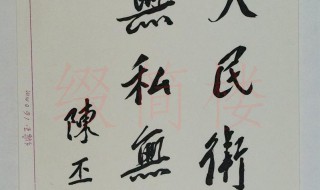 人民衛
無私無
陳丕
缀简楼